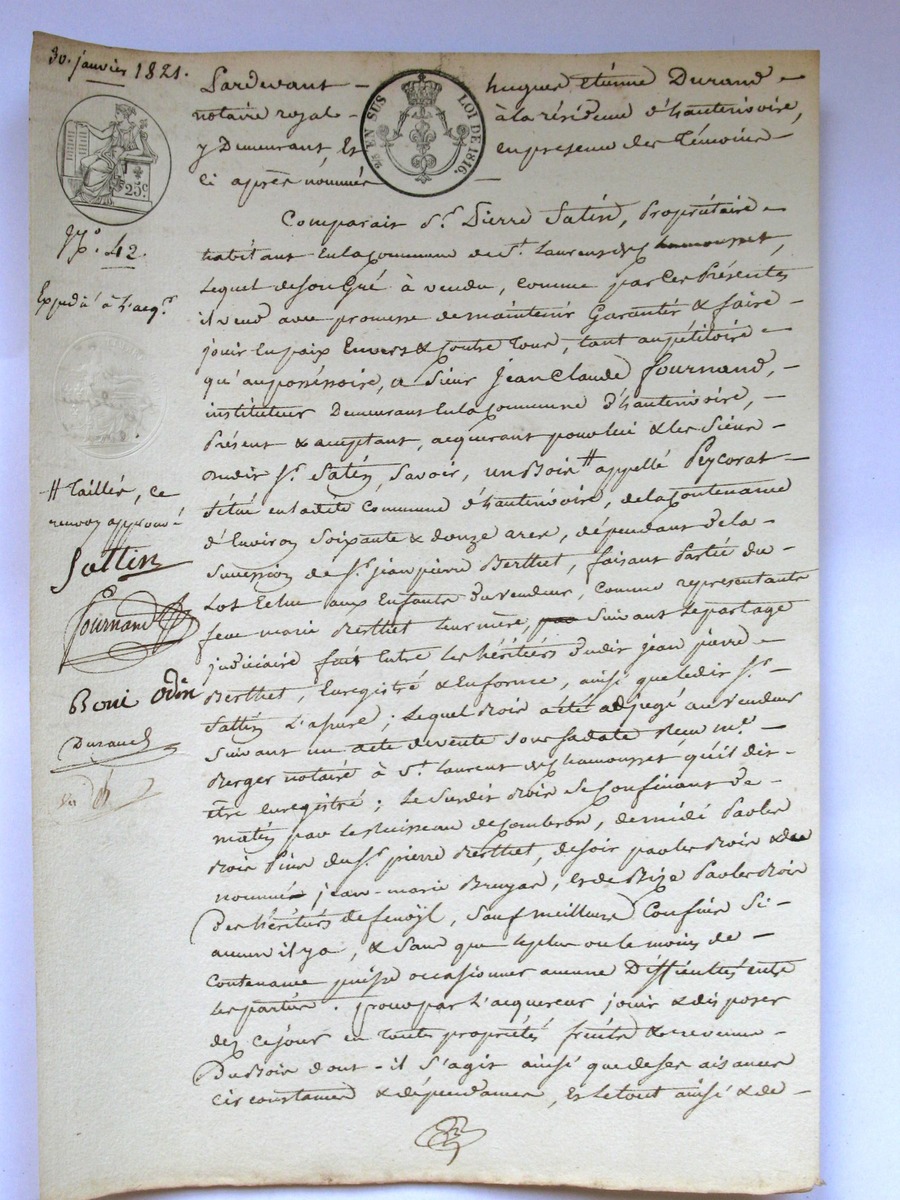 30. janvier 1821.
Pardevant – hugues Etienne Durand –
notaire royal – à la résidence d'hauterivoire,
y Demeurant, Et en presence des Témoins –
ci après nommés –
EN SUS
LOI DE 1816.
25c
N.o 42.
Expedié à L'acq.r
Comparait S.r Pierre Satin, Propriétaire –
habitant En la Commune de St. Laurent de Chamousset,
Lequel de Son Gré à vendu, comme par Ces Présentes
il vend avec promesse de maintenir Garantir & faire –
jouir En paix Envers & Contre Tous, tant au pétitoire –
qu'au possessoire, a Sieur Jean Claude fournand, –
instituteur Demeurant En la Commune d'hauterivoire, –
Présent & acceptant, acquerant pour lui & les Siens –
Dudit Sr. Satin, Savoir, un Bois # appellé Peycorat –
Situé en ladite Commune d'hauterivoire, de la Contenance
d'Environ Soixante & douze ares, dépendant de la –
Succession de Sr. jean pierre Berthet, faisant Partie du –
Lot Echu aux Enfants du vendeur, Comme representants
feue marie Berthet leur mère, Suivant Le partage
judiciaire fait Entre les héritiers dudit jean pierre –
Berthet, Enregistré & En forme, ainsi que ledit Sr.
Sattin L'assure ; Lequel Bois a été adjugé au vendeur
Suivant un acte de vente Sous Sa date Reçu me.
Berger notaire à St. Laurent de Chamousset, qu'il dit –
être Enregistré ; Le Susdit Bois Se Confinant de –
matin par le Ruisseau de Combron, de midi Par les
Bois Pins du Sr. pierre Berthet, de Soir par les Bois & de
nommé jean-marie Bruyas, & de Bize Par les Bois
Des héritiers de fenoÿl, Sauf meilleurs Confins Si –
aucun il y a, & Sans que le plus ou le moins de –
Contenance puisse occasionner aucune Difficultés entre
Les parties. Pour par L'acquereur jouir & disposer
dès Ce jour en toute propriétés fruits & revenus –
Du Bois dont-il S'agit ainsi que de Ses aisances
circonstances & dépendances, & le tout ainsi & de –
# Taillis, ce
renvoy approuvé
Sattin
fournand
Boni Odin
Durand